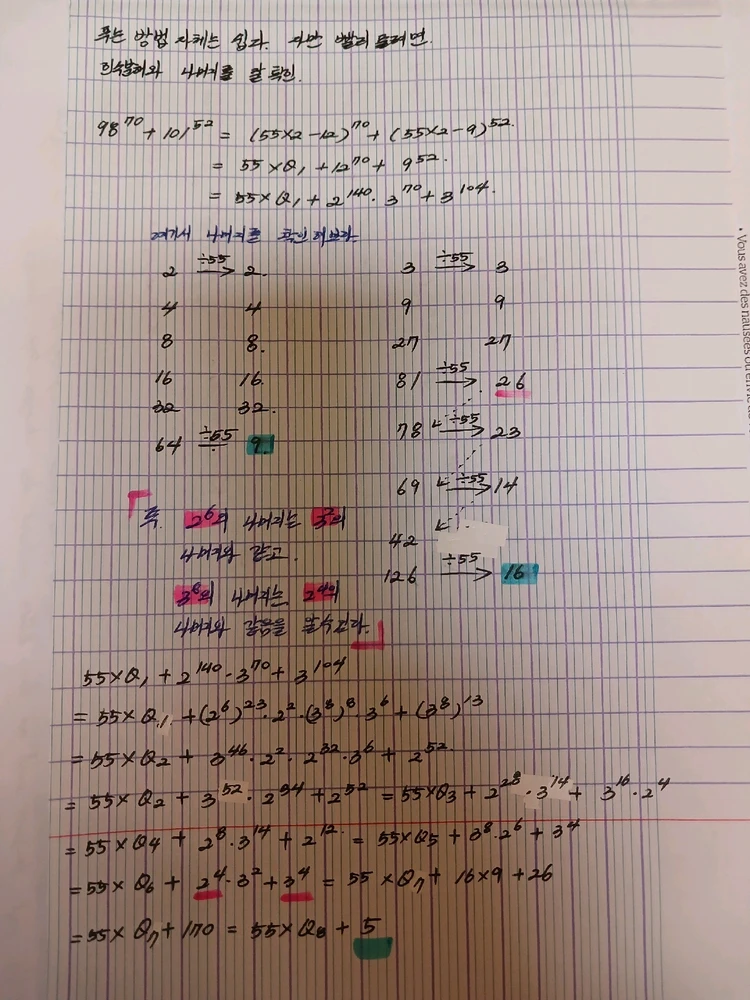 푸는 방법 자체는 쉽다. 다만 빨리 풀려면
인수분해와 나머지를 잘 확인.
98^70 + 101^52 = (55×2-12)^70 + (55×2-9)^52.
= 55×Q₁ + 12^70 + 9^52.
= 55×Q₁ + 2^140 · 3^70 + 3^104.
여기서 나머지를 확인해보라.
2 ÷55→ 2. 3 ÷55→ 3
4 4 9 9
8 8. 27 27
16 16. 81 ÷55→ 26
32 32. 78 ÷55→ 23
64 ÷55→ 9. 69 ÷55→ 14
42
126 ÷55→ 16
「즉. 2^6의 나머지는 3^2의
나머지와 같고.
3^8의 나머지는 2^4의
나머지와 같음을 알 수 있다.」
55×Q₁ + 2^140 · 3^70 + 3^104
= 55×Q₁ + (2^6)^23 · 2^2 · (3^8)^8 · 3^6 + (3^8)^13
= 55×Q₂ + 3^46 · 2^2 · 2^32 · 3^6 + 2^52.
= 55×Q₂ + 3^52 · 2^34 + 2^52 = 55×Q₃ + 2^28 · 3^14 + 3^16 · 2^4
= 55×Q₄ + 2^8 · 3^14 + 2^12. = 55×Q₅ + 3^8 · 2^6 + 3^4
= 55×Q₆ + 2^4 · 3^2 + 3^4 = 55×Q₇ + 16×9 + 26
= 55×Q₇ + 170 = 55×Q₈ + 5
• Vous avez des nausées ou envie de